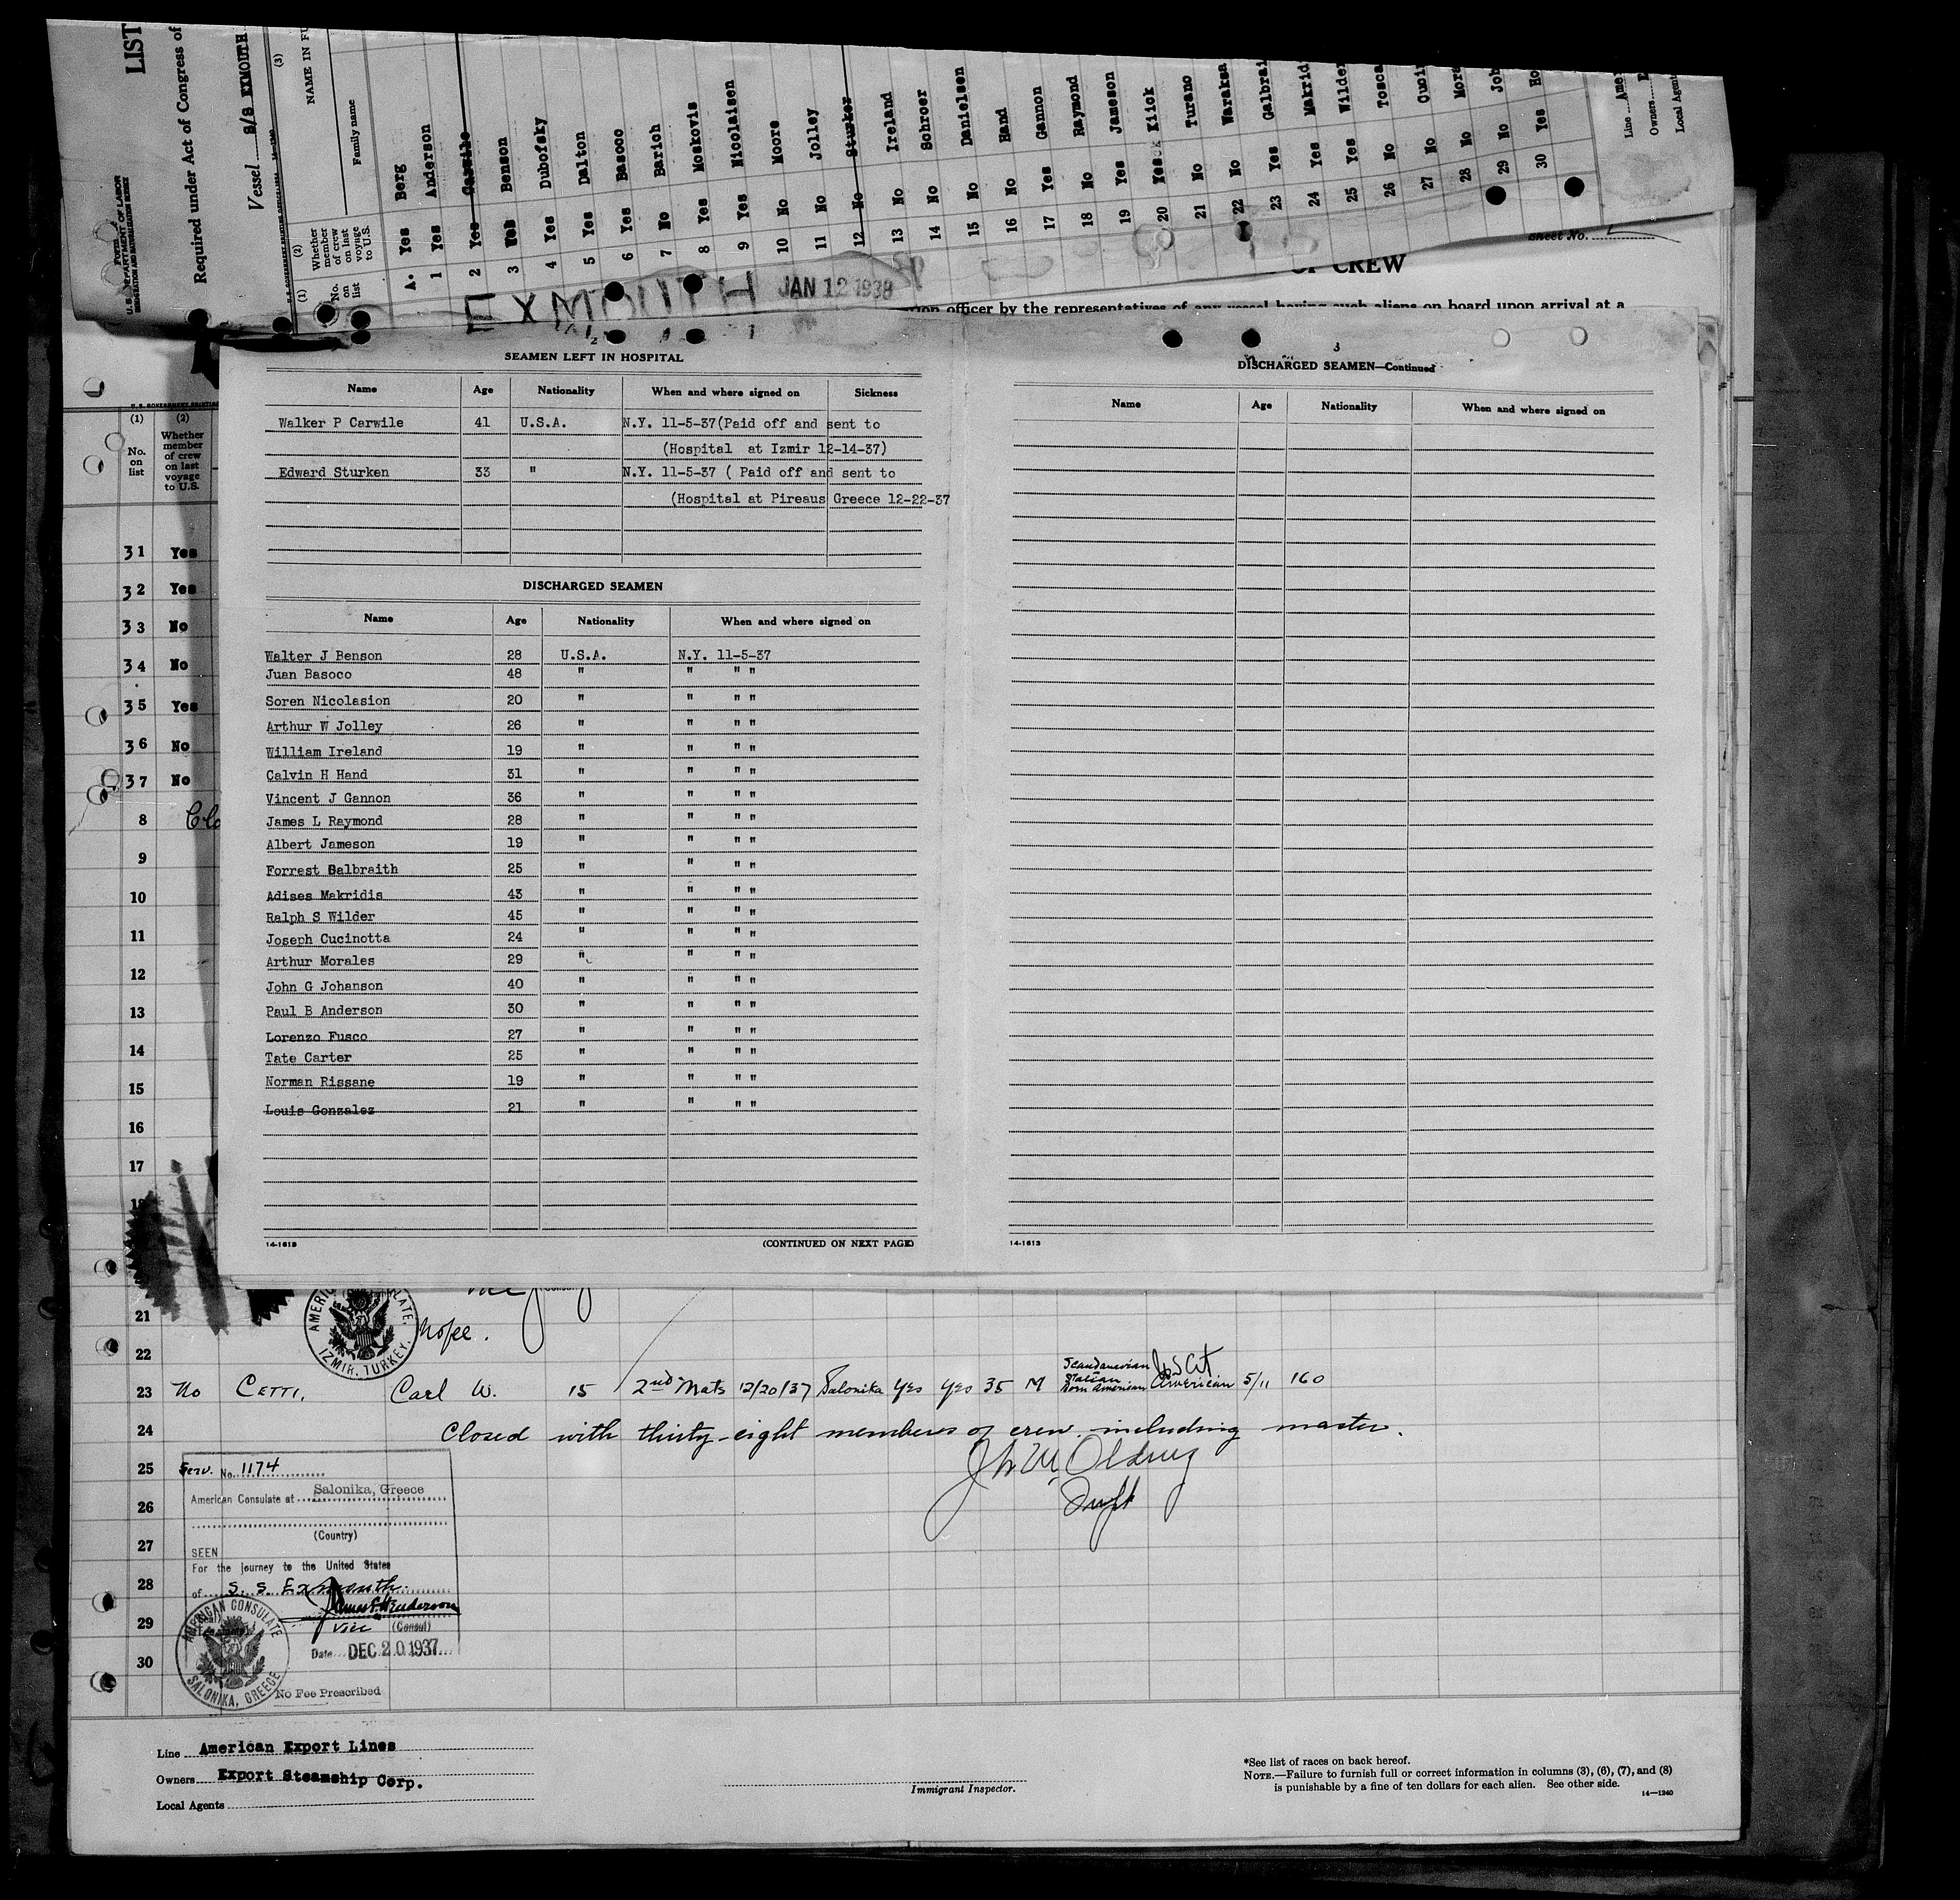 LIST
Required under Act of Congress of
U.S. DEPARTMENT OF LABOR
Vessel S/S EXMOUTH
(1) (2) (3)
No. on list
Whether member of crew on last voyage to U.S.
NAME IN FU
Family name
A. Yes Berg
1 Yes Anderson
2 Yes Carwile
3 Yes Benson
4 Yes Dubofsky
5 Yes Dalton
6 Yes Basoco
7 No Barich
8 Yes Moskovis
9 Yes Nicolaisen
10 No Moore
11 No Jolley
12 No Sturker
13 No Ireland
14 No Schroer
15 No Danielsen
16 No Hand
17 Yes Gannon
18 No Raymond
19 Yes Jameson
20 Yes Kiick
21 No Turano
22 No Waraksa
23 Yes Galbrai
24 Yes Makrid
25 Yes Wilder
26 No Tosca
27 No Cuci
28 No Mora
29 No Joh
30 Yes Ho
Line Amer
Owners E
Local Agent
EXMOUTH JAN 12 1938
Sheet No.
OF CREW
officer by the representatives of any vessel having such aliens on board upon arrival at a
SEAMEN LEFT IN HOSPITAL
Name Age Nationality When and where signed on Sickness
Walker P Carwile 41 U.S.A. N.Y. 11-5-37(Paid off and sent to
(Hospital at Izmir 12-14-37)
Edward Sturken 33 " N.Y. 11-5-37 ( Paid off and sent to
(Hospital at Pireaus Greece 12-22-37
DISCHARGED SEAMEN
Name Age Nationality When and where signed on
Walter J Benson 28 U.S.A. N.Y. 11-5-37
Juan Basoco 48 " " " "
Soren Nicolasion 20 " " " "
Arthur W Jolley 26 " " " "
William Ireland 19 " " " "
Calvin H Hand 31 " " " "
Vincent J Gannon 36 " " " "
James L Raymond 28 " " " "
Albert Jameson 19 " " " "
Forrest Galbraith 25 " " " "
Adises Makridis 43 " " " "
Ralph S Wilder 45 " " " "
Joseph Cucinotta 24 " " " "
Arthur Morales 29 " " " "
John G Johanson 40 " " " "
Paul B Anderson 30 " " " "
Lorenzo Fusco 27 " " " "
Tate Carter 25 " " " "
Norman Rissane 19 " " " "
Louis Gonzalez 21 " " " "
14-1613 (CONTINUED ON NEXT PAGE)
3
DISCHARGED SEAMEN—Continued
Name Age Nationality When and where signed on
14-1613
(1) (2)
No. on list
Whether member of crew on last voyage to U.S.
31 Yes
32 Yes
33 No
34 No
35 Yes
36 No
37 No
8 Clo
9
10
11
12
13
14
15
16
17
18
21
22
AMERICAN CONSULATE, IZMIR, TURKEY.
nofee.
23 No CETTI, Carl W. 15 2nd Mate 12/20/37 Salonika Yes Yes 35 M Scandanavian Italian Born American US Cit American 5/11 160
24 Closed with thirty-eight members of crew including master.
25
26
27
28
29
30
Serv. No. 1174
American Consulate at Salonika, Greece
(Country)
SEEN
For the journey to the United States
of S. S. Exmouth
Vice (Consul)
Date DEC 20 1937
AMERICAN CONSULATE SALONIKA, GREECE
No Fee Prescribed
Line American Export Lines
Owners Export Steamship Corp.
Local Agents
Immigrant Inspector.
*See list of races on back hereof.
NOTE.—Failure to furnish full or correct information in columns (3), (6), (7), and (8)
is punishable by a fine of ten dollars for each alien. See other side.
14—1240